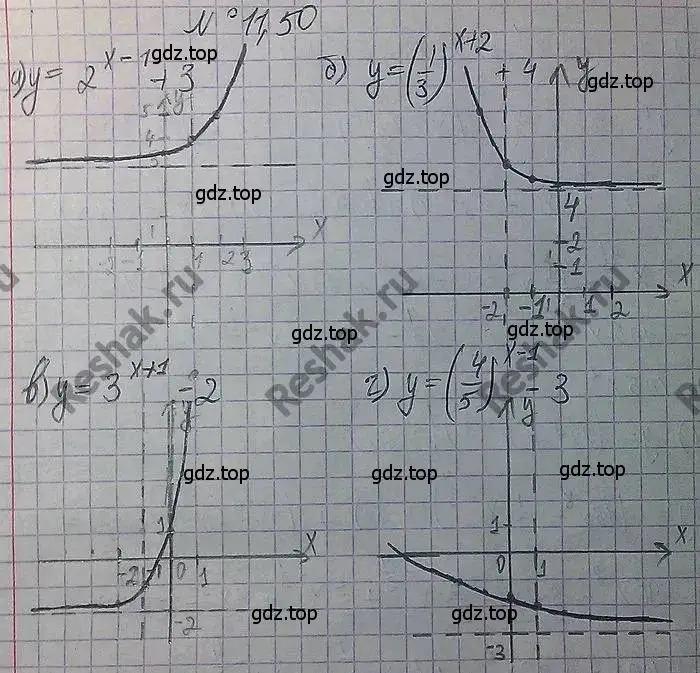 № 11,50
а) y = 2^(x-1) + 3
б) y = (1/3)^(x+2) + 4
gdz.top
gdz.top
y
y
5
4
3
gdz.top
gdz.top
4
2
1
1
x
x
-2 -1 1 2 3
-2 -1 1 2
gdz.top
gdz.top
Reshak.ru
Reshak.ru
в) y = 3^(x+1) - 2
г) y = (4/5)^(x-1) - 3
y
y
gdz.top
gdz.top
gdz.top
1
1
x
x
-2 -1 0 1
0 1
gdz.top
gdz.top
-2
-3